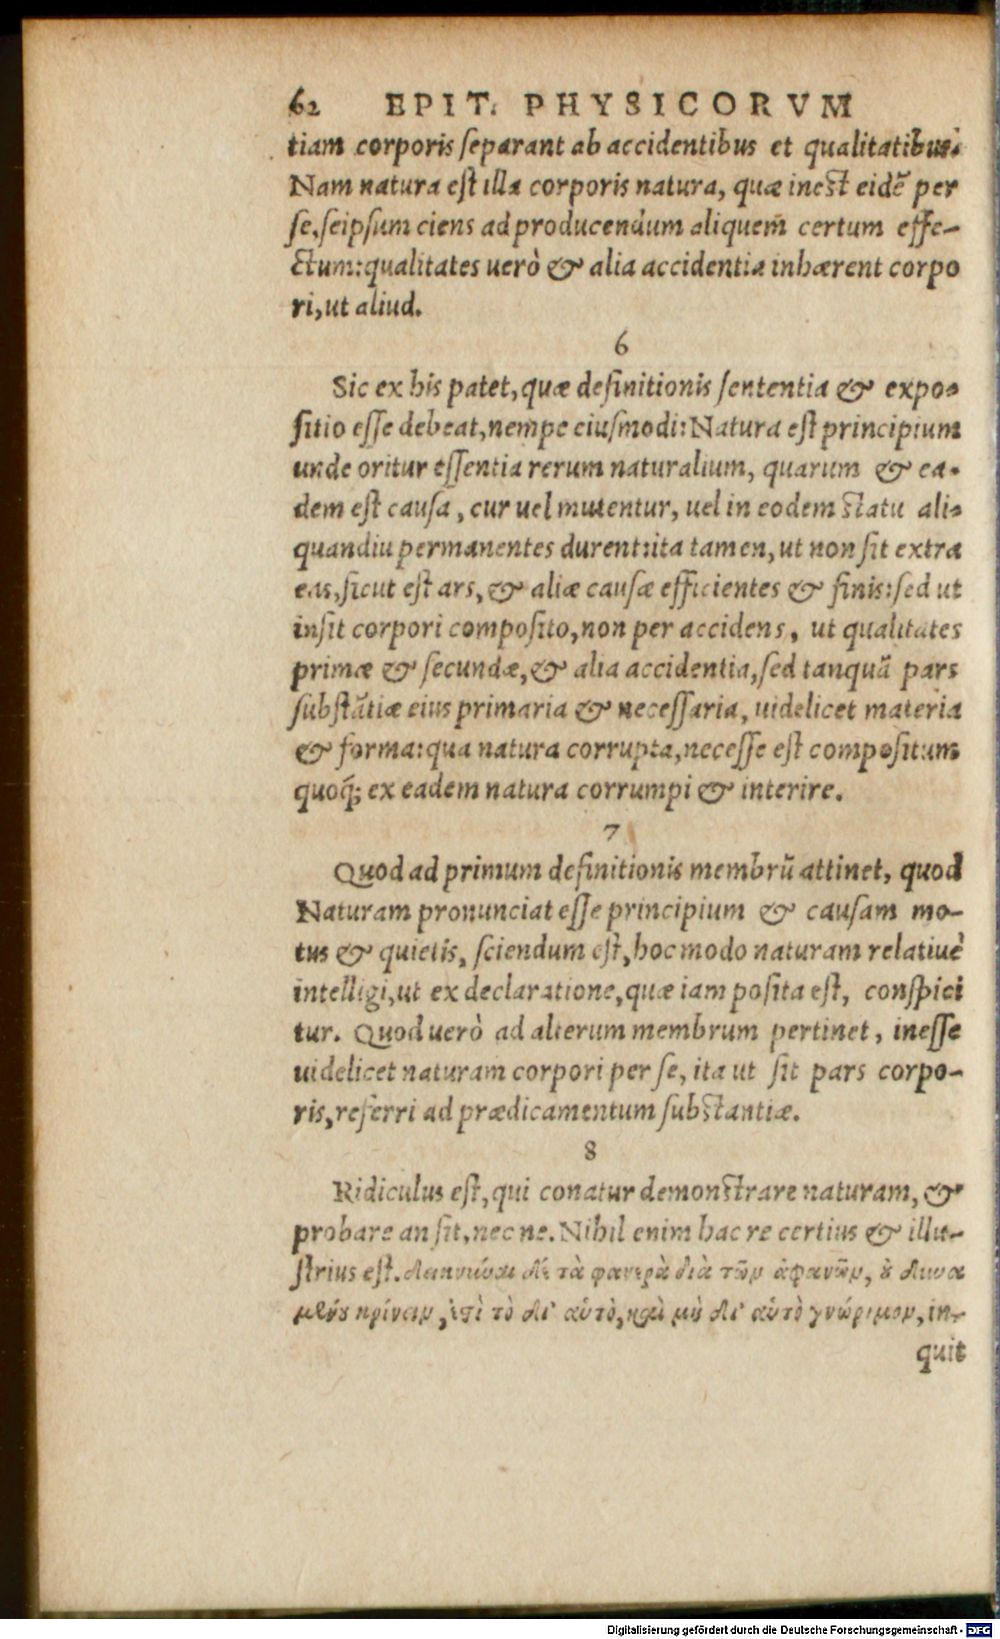 62 EPIT. PHYSICORVM
tiam corporis separant ab accidentibus et qualitatibus.
Nam natura est illa corporis natura, quæ inest eidē per
se, seipsum ciens ad producendum aliquem certum effe-
ctum: qualitates uerò & alia accidentia inhærent corpo
ri, ut aliud.
6
Sic ex his patet, quæ definitionis sententia & expo-
sitio esse debeat, nempe eiusmodi: Natura est principium
unde oritur essentia rerum naturalium, quarum & ea-
dem est causa, cur uel mutentur, uel in eodem statu ali-
quandiu permanentes durent: ita tamen, ut non sit extra
eas, sicut est ars, & aliæ causæ efficientes & finis: sed ut
insit corpori composito, non per accidens, ut qualitates
primæ & secundæ, & alia accidentia, sed tanquā pars
substātiæ eius primaria & necessaria, uidelicet materia
& forma: qua natura corrupta, necesse est compositum
quoq; ex eadem natura corrumpi & interire.
7
Quod ad primum definitionis membrū attinet, quod
Naturam pronunciat esse principium & causam mo-
tus & quietis, sciendum est, hoc modo naturam relatiuè
intelligi, ut ex declaratione, quæ iam posita est, conspici
tur. Quod uerò ad alterum membrum pertinet, inesse
uidelicet naturam corpori per se, ita ut sit pars corpo-
ris, referri ad prædicamentum substantiæ.
8
Ridiculus est, qui conatur demonstrare naturam, &
probare an sit, nec ne. Nihil enim hac re certius & illu-
strius est. δεικνύναι δὲ τὰ φανερὰ διὰ τῶν ἀφανῶν, ȣ δυνα
μένȣ κρίνειν, ἐστὶ τὸ δι' αὑτὸ, καὶ μὴ δι' αὑτὸ γνώριμον, in-
quit
Digitalisierung gefördert durch die Deutsche Forschungsgemeinschaft - DFG